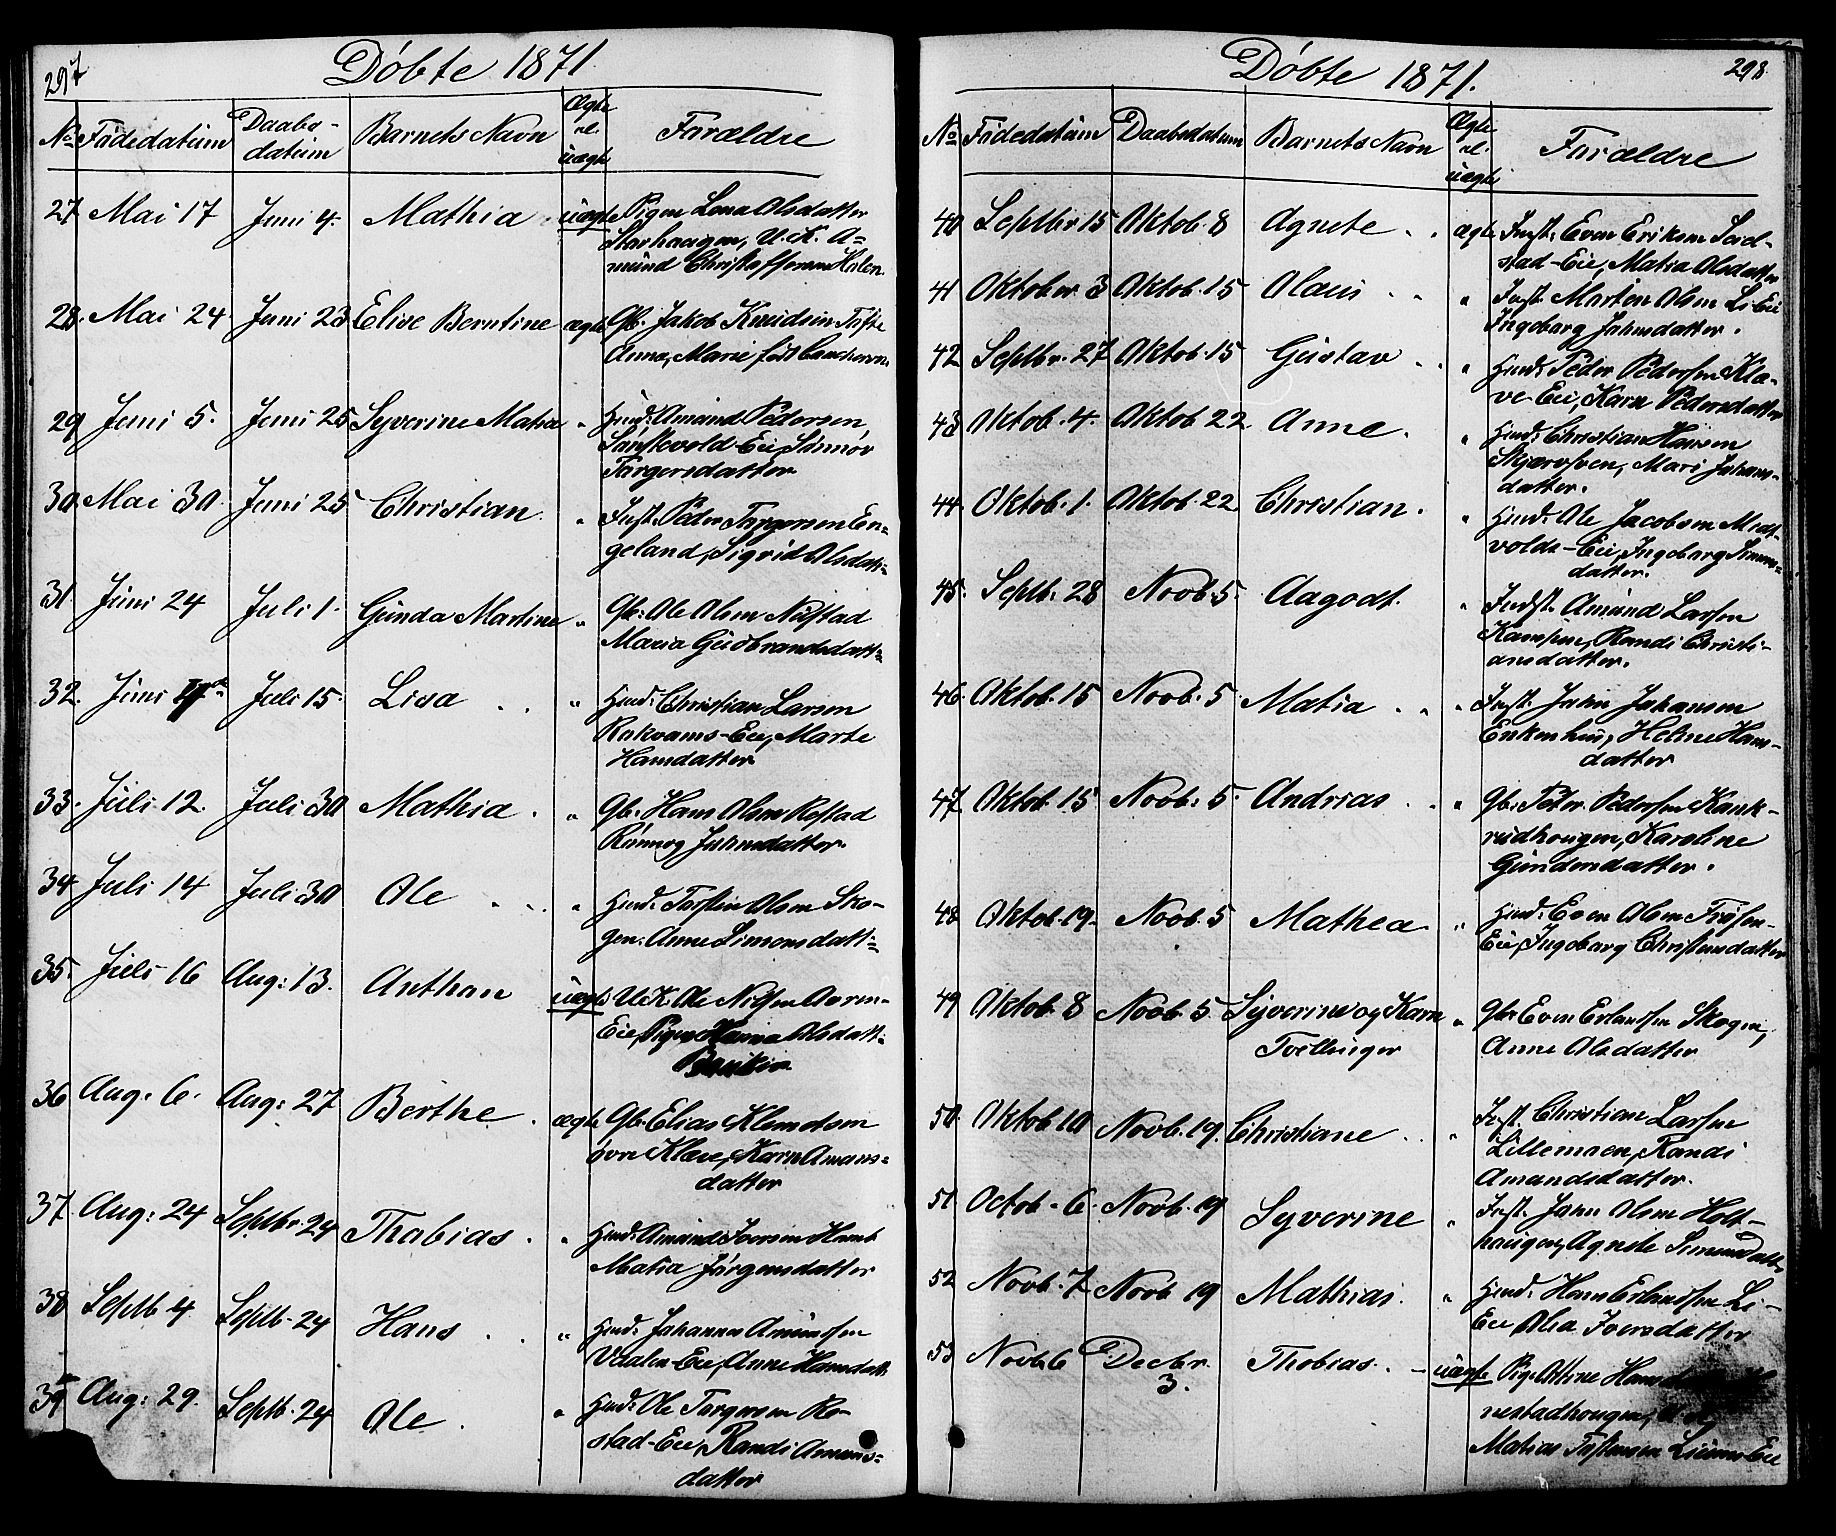 297
Döbte 1871
No Födedatum Daabs-datum Barnets Navn Ægte el. uægte Forældre
27 Mai 17 Juni 4. Mathia uægte Pigen Lena Olsdatter
Storhaugen, U. K. A=
mund Christoffersen Holen
28. Mai 24 Juni 23 Elise Berntine ægte Gb. Jakob Knudsen Tofte
Anna Marie född
29 Juni 5. Juni 25 Syverine Matia " Huusm: Amund Pedersen,
Eie,
Torgersdatter
30. Mai 30. Juni 25 Christian. " Inst. Peder Torgersen En-
geland, Sigrid Olsdatt=
31. Juni 24 Juli 1. Gunda Martine " Gb: Ole Olsen Nustad
Maria Gudbrandsdatt=
32. Juni Juli 15. Lisa " Huusm: Christian Larsen
Rakvams-Eie, Marte
Hansdatter
33. Juli 12. Juli 30 Mathia " Gb: Hans Olsen Rostad
Rönnog Johnsdatter.
34 Juli 14 Juli 30 Ole " Huusm: Torsten Olsen Sko-
gen: Anne Simonsdatt=
35. Juli 16 Aug: 13. Anthon uægte U.K. Ole Nilsen
Eie, Pigen Olsdatt=
36 Aug. 6. Aug: 27 Berthe. ægte Gb: Elias Klemetsen
övre Kläve, Karn Amans-
datter
37. Aug: 24 Septbr. 24 Thobias. " Huusm: Amund Iversen
Matia Jörgensdatter
38 Septb 4 Septb. 24 Hans " Huusm: Johannes Amundsen
Vaalen-Eie, Anne Hansdatt.
39 Aug: 29. Septb. 24 Ole. " Huusm: Ole Torgersen Ro-
stad-Eie, Randi Amuns=
datter
298
Döbte 1871.
No Födedatum Daabsdatum Barnets Navn Ægte el. uægte Forældre
40 Septbr 15 Oktob. 8 Agnete ægte Inst: Even Eriksen
stad-Eie, Matia Olsdatter
41 Oktober 3 Oktob. 15 Olaus " Inst. Morten Olsen Li-Eie
Ingeborg Johnsdatter.
42 Septbr. 27 Oktob. 15 Gustav " Huusm: Peder Pedersen Klä-
ve Eie, Karn Pedersdatter
43 Oktob. 4. Oktob 22 Anne. " Huusm: Christian Hansen
Mari Johans-
datter.
44. Oktob. 1. Oktob. 22 Christian. " Huusm: Ole Jacobsen
volds-Eie, Ingeborg Simens=
datter.
45. Septb. 28 Novb. 5. Aagodt. " Indst. Amund Larsen
Randi Christi-
ansdatter.
46. Oktob. 15 Novb. 5 Matia " Inst. John Johansen
Helene Hans-
datter
47 Oktob. 15 Novb: 5. Andrias " Gb: Peter Pedersen
rudhougen, Karoline
Gundersdatter.
48 Oktob. 19. Novb. 5 Mathea " Huusm: Even Olsen
Eie, Ingeborg Christensdatter
49 Oktob. 8 Novb. 5 Syverine og Karn " Gb: Even Erlandsen Skogen,
Tvillinger Anne Olsdatter
50. Oktob. 10 Novb. 19. Christiane " Inst. Christian Larsen
Lillemoen, Randi
Amandsdatter.
51 Octob. 6. Novb. 19 Syverine " Inst. John Olsen Holt-
haugen, Agnete Simensdatt=
52. Novb. 7 Novb 19 Mathias. " Huusm: Hans Erlandsen Li-
Eie, Olea Iversdatter
53 Novb. 6 Decbr. 3. Thobias. uægte Pig. Oline
nestadhougen, U. K.
Matias Torstensen Eie